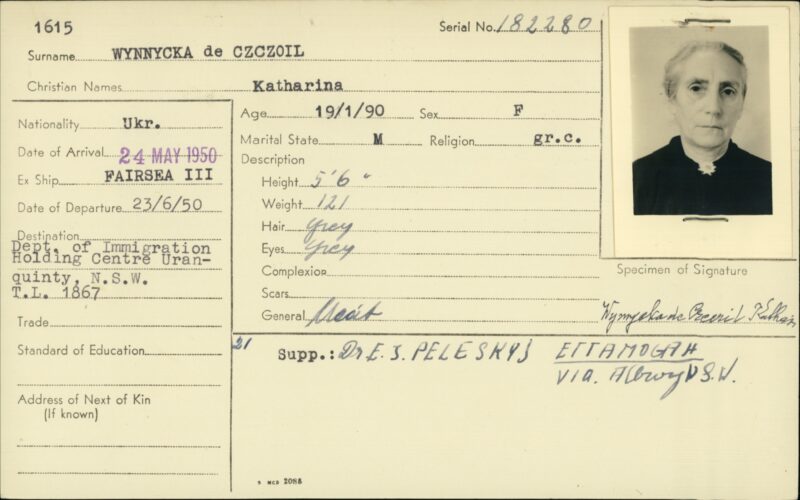 1615
Serial No. 182280
Surname WYNNYCKA de CZCZOIL
Christian Names Katharina
Nationality Ukr.
Date of Arrival 24 MAY 1950
Ex Ship FAIRSEA III
Date of Departure 23/6/50
Destination
Dept. of Immigration
Holding Centre Uran-
quinty, N.S.W.
T.L. 1867
Trade
Standard of Education
Address of Next of Kin
(If known)
Age 19/1/90 Sex F
Marital State M Religion gr.c.
Description
Height 5'6"
Weight 121
Hair grey
Eyes grey
Complexion
Scars
General
Specimen of Signature
21 Supp.: Dr E. J. PELESKYJ ETTAMOGAH
VIA. Albury N.S.W.
5 MCD 2088